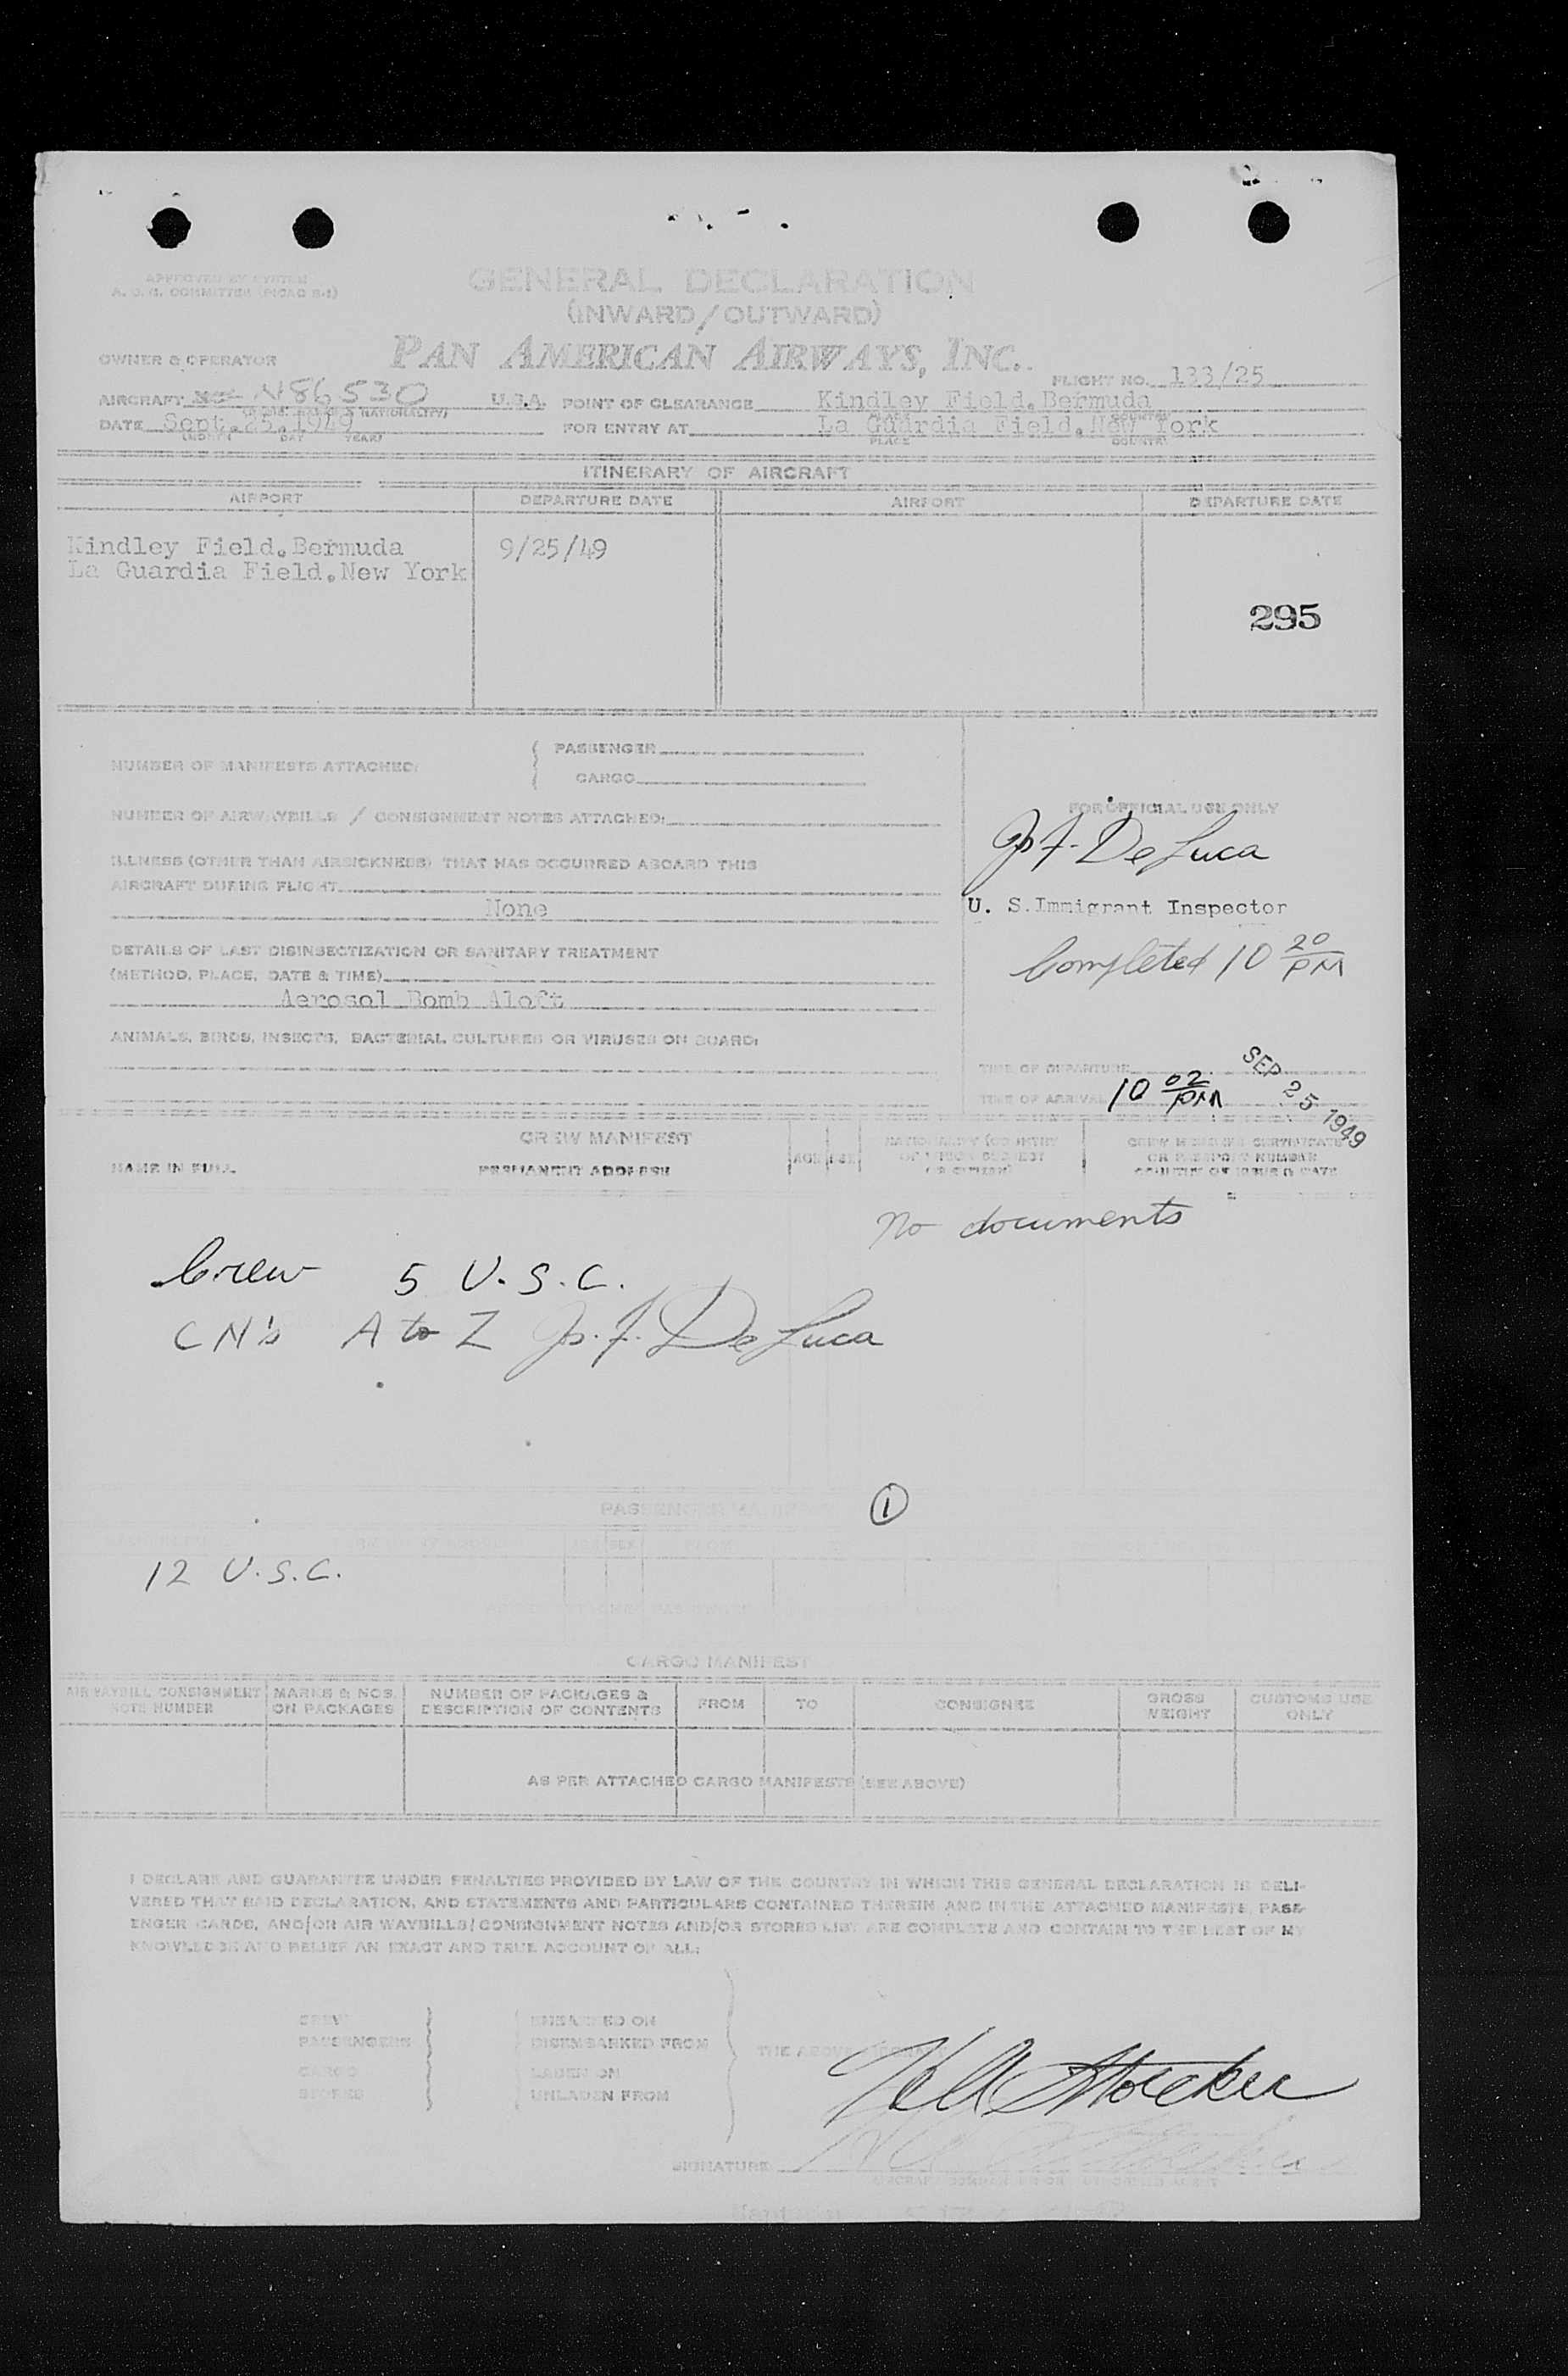 APPROVED BY SYSTEM
A. O. G. COMMITTEE (PICAO B-1)
GENERAL DECLARATION
(INWARD/OUTWARD)
OWNER & OPERATOR
PAN AMERICAN AIRWAYS, INC.
FLIGHT NO. 133/25
AIRCRAFT N86530 U.S.A. POINT OF CLEARANCE Kindley Field.Bermuda
PLACE COUNTRY
DATE Sept.25.1949 FOR ENTRY AT La Guardia Field.New York
DAY YEAR) PLACE COUNTRY
ITINERARY OF AIRCRAFT
AIRPORT DEPARTURE DATE AIRPORT DEPARTURE DATE
Kindley Field.Bermuda 9/25/49
La Guardia Field.New York
295
NUMBER OF MANIFESTS ATTACHED: PASSENGER
CARGO
NUMBER OF AIRWAYBILLS / CONSIGNMENT NOTES ATTACHED:
FOR OFFICIAL USE ONLY
De Luca
ILLNESS (OTHER THAN AIRSICKNESS) THAT HAS OCCURRED ABOARD THIS
AIRCRAFT DURING FLIGHT
None
U. S.Immigrant Inspector
DETAILS OF LAST DISINSECTIZATION OR SANITARY TREATMENT
(METHOD, PLACE, DATE & TIME)
Completed 10 20 PM
Aerosol Bomb Aloft
ANIMALS, BIRDS, INSECTS, BACTERIAL CULTURES OR VIRUSES ON BOARD:
TIME OF DEPARTURE
TIME OF ARRIVAL 10 02 PM
SEP 25 1949
CREW MANIFEST
NAME IN FULL PERMANENT ADDRESS AGE SEX NATIONALITY (COUNTRY
OF WHICH SUBJECT
OR CITIZEN)
CREW MEMBERS CERTIFICATE
OR PASSPORT NUMBER
COUNTRY OF ISSUE & DATE
No documents
Crew 5 U.S.C.
CN's A to Z Jo. F. De Luca
PASSENGER MANIFEST 1
12 U.S.C.
CARGO MANIFEST
AIR WAYBILL CONSIGNMENT
NOTE NUMBER
MARKS & NOS.
ON PACKAGES
NUMBER OF PACKAGES &
DESCRIPTION OF CONTENTS
FROM TO CONSIGNEE
GROSS
WEIGHT
CUSTOMS USE
ONLY
AS PER ATTACHED CARGO MANIFESTS (SEE ABOVE)
I DECLARE AND GUARANTEE UNDER PENALTIES PROVIDED BY LAW OF THE COUNTRY IN WHICH THIS GENERAL DECLARATION IS DELI-
VERED THAT SAID DECLARATION, AND STATEMENTS AND PARTICULARS CONTAINED THEREIN AND IN THE ATTACHED MANIFESTS, PASS-
ENGER CARDS, AND/OR AIR WAYBILLS/CONSIGNMENT NOTES AND/OR STORES LIST ARE COMPLETE AND CONTAIN TO THE BEST OF MY
KNOWLEDGE AND BELIEF AN EXACT AND TRUE ACCOUNT OF ALL:
CREW EMBARKED ON
PASSENGERS DISEMBARKED FROM
THE ABOVE AIRCRAFT
CARGO LADEN ON
STORES UNLADEN FROM
SIGNATURE